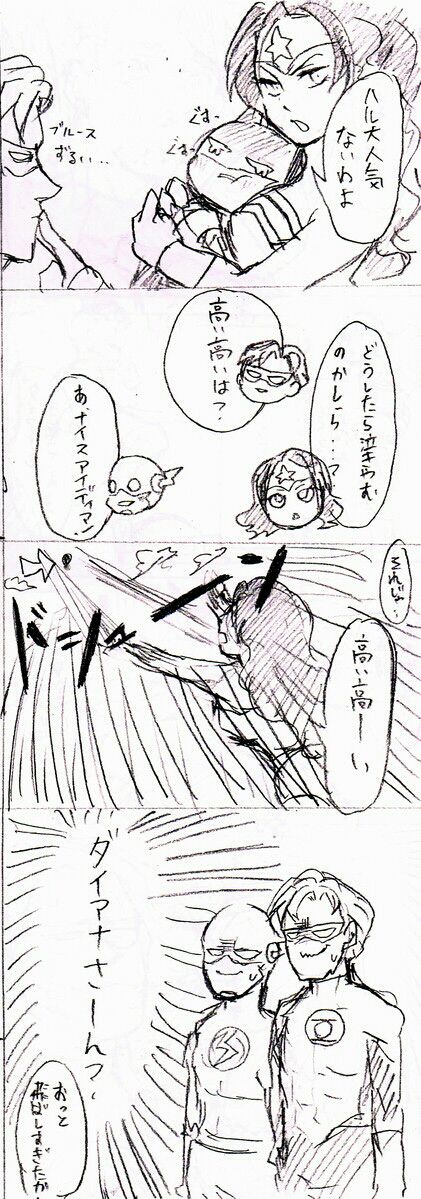 ハル大人気
ないわよ
ぐすっ
ぐすっ
ブルース
ずるい…
どうしたら泣きやむ
のかしら…？
高い高いは？
あ、ナイスアイディア！
それじゃ…
高い高ーい
ドーーン
ダイアナさーん？
おっと
飛ばしすぎたか